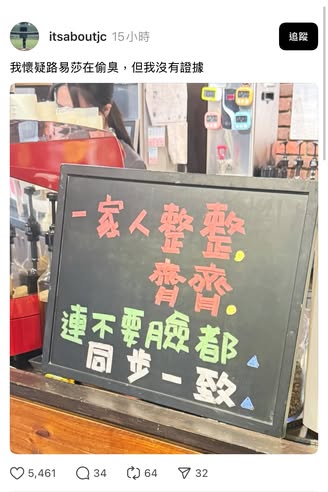 itsaboutjc 15小時
追蹤
我懷疑路易莎在偷臭，但我沒有證據
一家人整整,
齊齊.
連不要臉都
同步一致
5,461 34 64 32